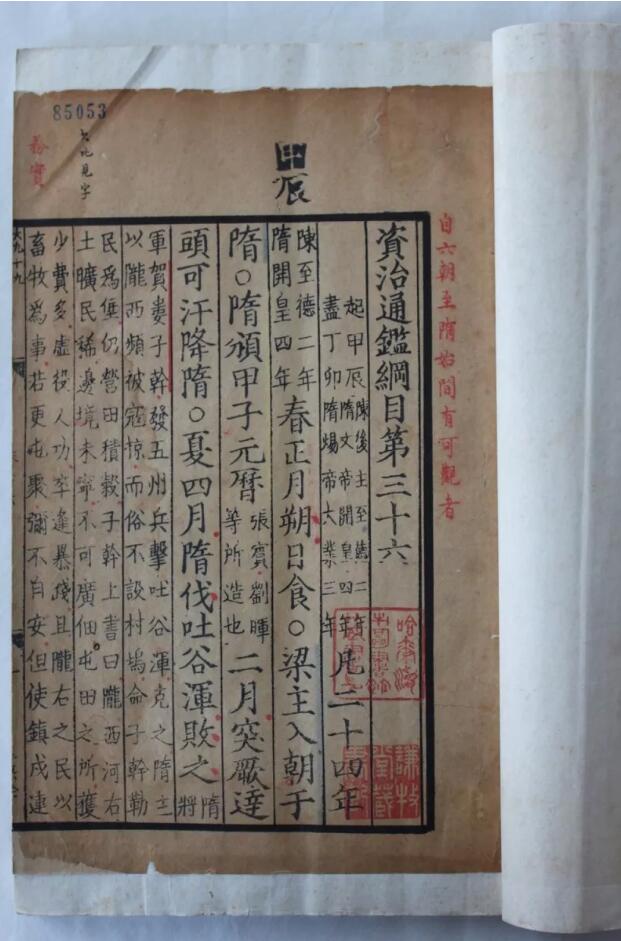 85053
務實
甲辰
自六朝至隋始間有可觀者
資治通鑑綱目第三十六
起甲辰陳後主至德二年隋文帝開皇四年
盡丁卯隋煬帝大業三年
凡二十四年
陳至德二年
隋開皇四年
春正月朔日食○梁主入朝于
隋○隋頒甲子元曆張賓劉暉等所造也二月突厥達
頭可汗降隋○夏四月隋伐吐谷渾敗之隋將
軍賀婁子幹發五州兵擊吐谷渾克之隋主
以隴西頻被寇掠而俗不設村塢命子幹勒
民爲堡仍營田積穀子幹上書曰隴西河右
土曠民稀邊境未寧不可廣佃屯田之所獲
少費多虛役人功卒逢暴踐且隴右之民以
畜牧爲事若更屯聚彌不自安但使鎮戍連
謙牧堂藏書記